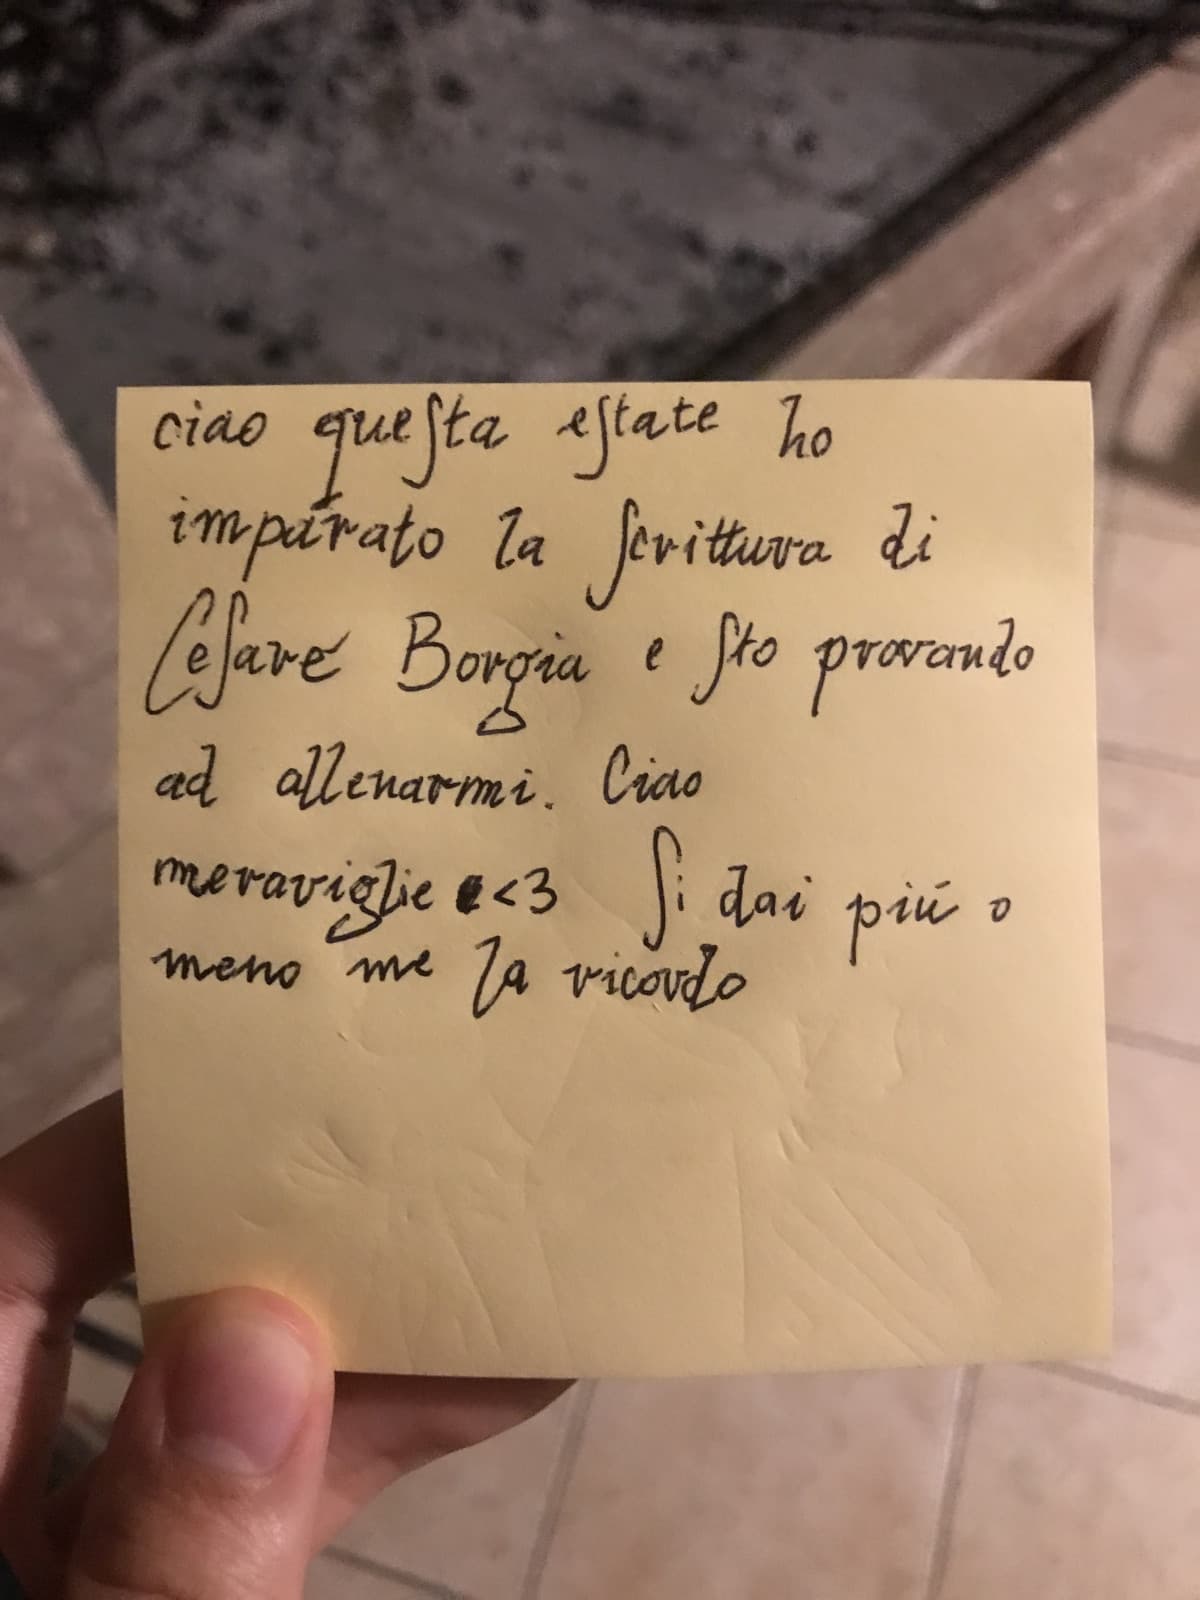 ciao queſta eſtate ho
imparato la ſcrittura di
Ceſare Borgia e ſto provando
ad allenarmi. Ciao
meraviglie <3 Si dai piú o
meno me la ricordo